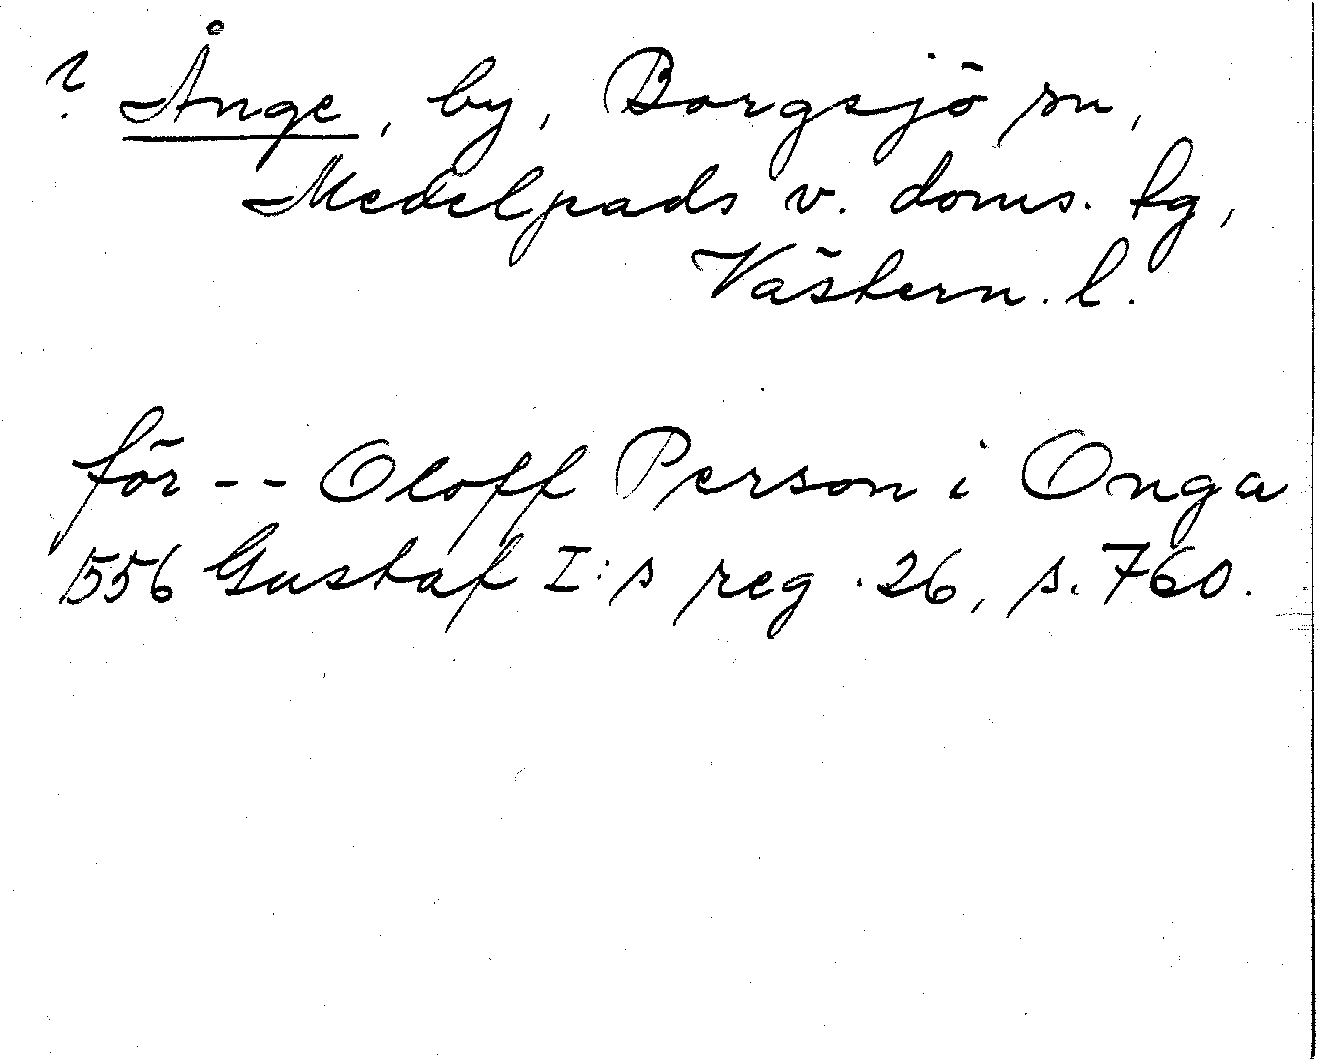 ? Ånge, by, Borgsjö sn,
Medelpads v. doms. tg,
Västern. l.
för -- Oloff Person i Onga
1556 Gustaf I:s reg. 26, s. 760.